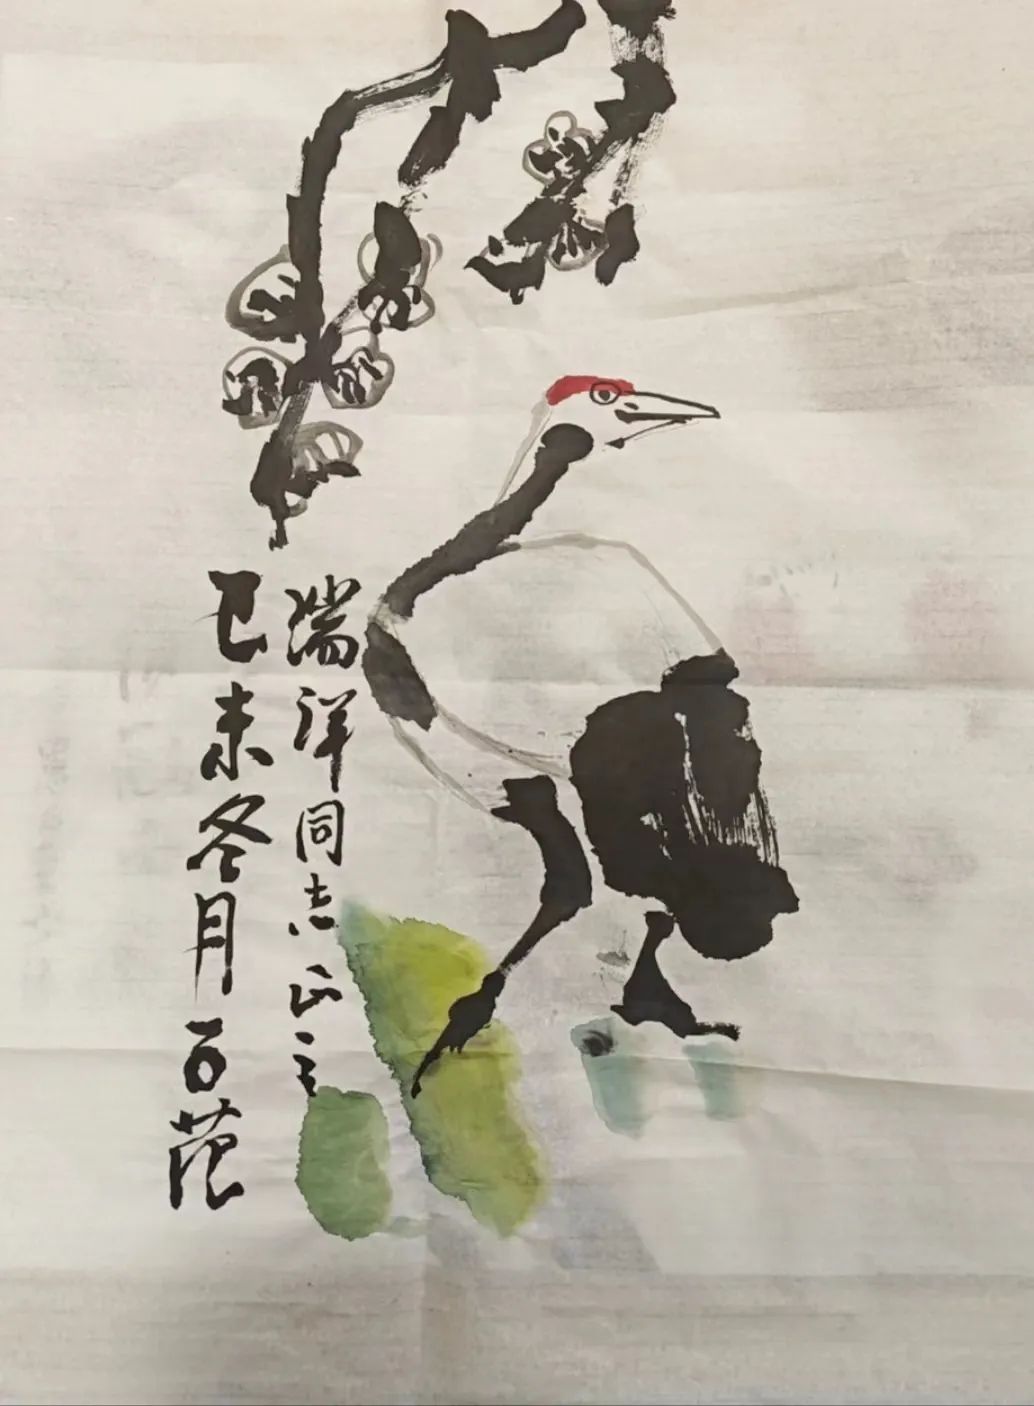 瑞洋同志正之
己未冬月 范